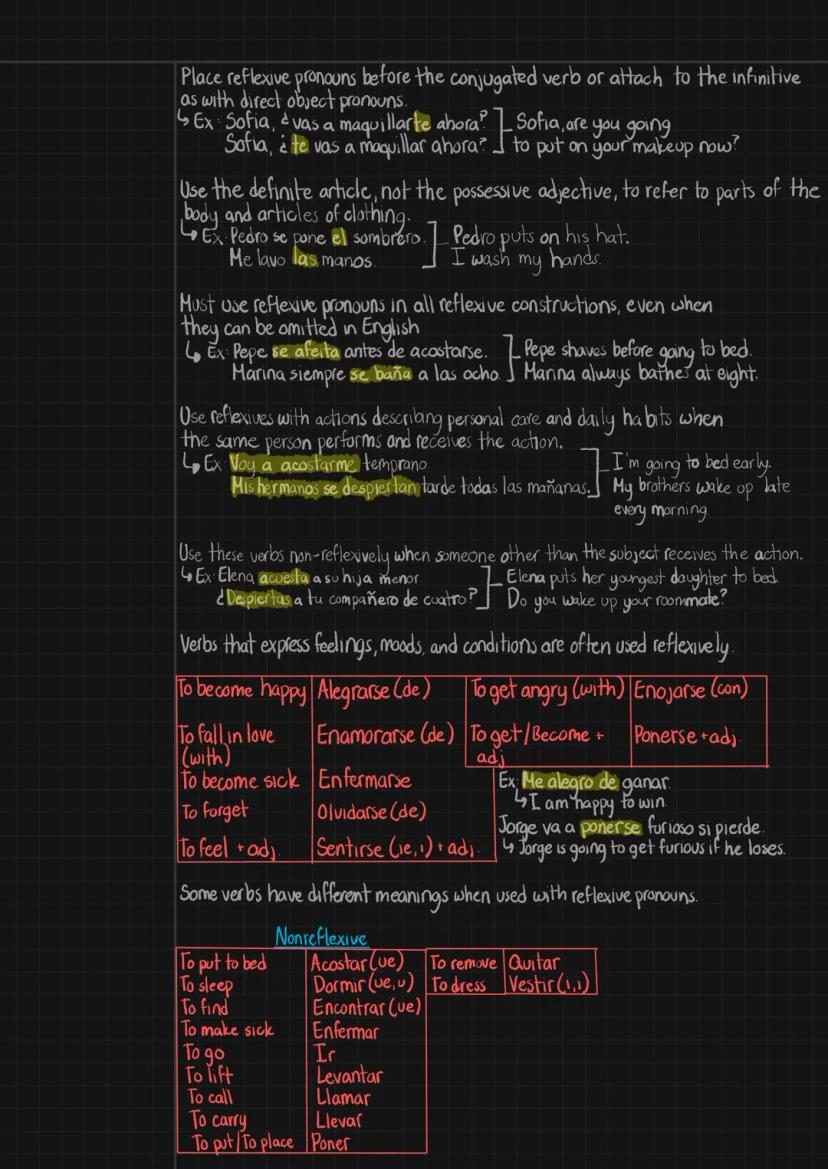 Place reflexive pronouns before the conjugated verb or attach to the infinitive
as with direct object pronouns.
↳ Ex: Sofia, ¿vas a maquillarte ahora? Sofia, are you going
Sofia, ¿te vas a maquillar ahora? to put on your makeup now?
Use the definite article, not the possessive adjective, to refer to parts of the
body and articles of clothing.
↳ Ex: Pedro se pone el sombrero. Pedro puts on his hat.
Me lavo las manos. I wash my hands.
Must use reflexive pronouns in all reflexive constructions, even when
they can be omitted in English
↳ Ex: Pepe se afeita antes de acostarse. Pepe shaves before going to bed.
Marina siempre se baña a las ocho. Marina always bathes at eight.
Use reflexives with actions describing personal care and daily habits when
the same person performs and receives the action.
↳ Ex: Voy a acostarme temprano I'm going to bed early.
Mis hermanos se despiertan tarde todas las mañanas. My brothers wake up late
every morning.
Use these verbs non-reflexively when someone other than the subject receives the action.
↳ Ex: Elena acuesta a su hija menor. Elena puts her youngest daughter to bed.
¿Despiertas a tu compañero de cuatro? Do you wake up your roommate?
Verbs that express feelings, moods, and conditions are often used reflexively.
To become happy Alegrarse (de) To get angry (with) Enojarse (con)
To fall in love Enamorarse (de) To get/Become + Ponerse + adj.
(with) adj
To become sick Enfermarse Ex: Me alegro de ganar.
↳ I am happy to win
To forget Olvidarse (de) Jorge va a ponerse furioso si pierde.
To feel + adj. Sentirse (ie,i) + adj. ↳ Jorge is going to get furious if he loses.
Some verbs have different meanings when used with reflexive pronouns.
Nonreflexive
To put to bed Acostar (ue) To remove Quitar
To sleep Dormir (ue,u) To dress Vestir (i,i)
To find Encontrar (ue)
To make sick Enfermar
To go Ir
To lift Levantar
To call Llamar
To carry Llevar
To put/To place Poner